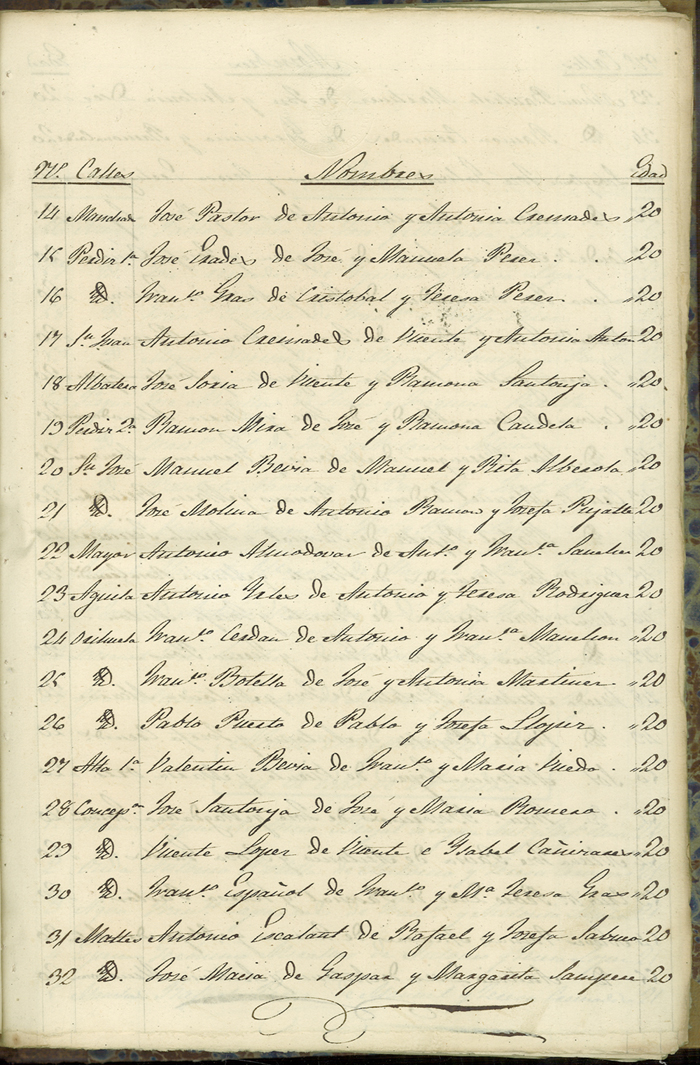 N.º Calles Nombres Edad
14 José Pastor de Antonio y Antonia Cremades „20
15 Perdir 1ª José Prades de José y Manuela Perez . . „20
16 D. Franco Gras de Cristobal y Teresa Perez . „20
17 Sn Juan Antonio Cremades de Vicente y Antonia Anton 20
18 Albatera José Soria de Vicente y Ramona Santonja . „20
19 Perdir 2ª Ramon Mira de José y Ramona Candela . „20
20 Sn José Manuel Bevia de Manuel y Rita Alberola „20
21 D. José Molina de Antonio Ramon y Josefa Pujalte 20
22 Mayor Antonio Almodovar de Anto y Franca Sanchez 20
23 Aguila Antonio de Antonio y Teresa Rodriguez 20
24 Orihuela Franco Cerdan de Antonio y Franca Manchon „20
25 D. Franco Botella de José y Antonia Martinez „20
26 D. Pablo Puerto de Pablo y Josefa Llopiz . „20
27 Alta 1ª Valentin Bevia de Franco y Maria . „20
28 Concepn José Santonja de José y Maria Romero . „20
29 D. Vicente Lopez de Vicente é Ysabel Cañizares „20
30 D. Franco Español de Franco y Mª Teresa Gras „20
31 Antonio Escalant de Rafael y Josefa 20
32 D. José Macia de Gaspar y Margarita Sempere 20